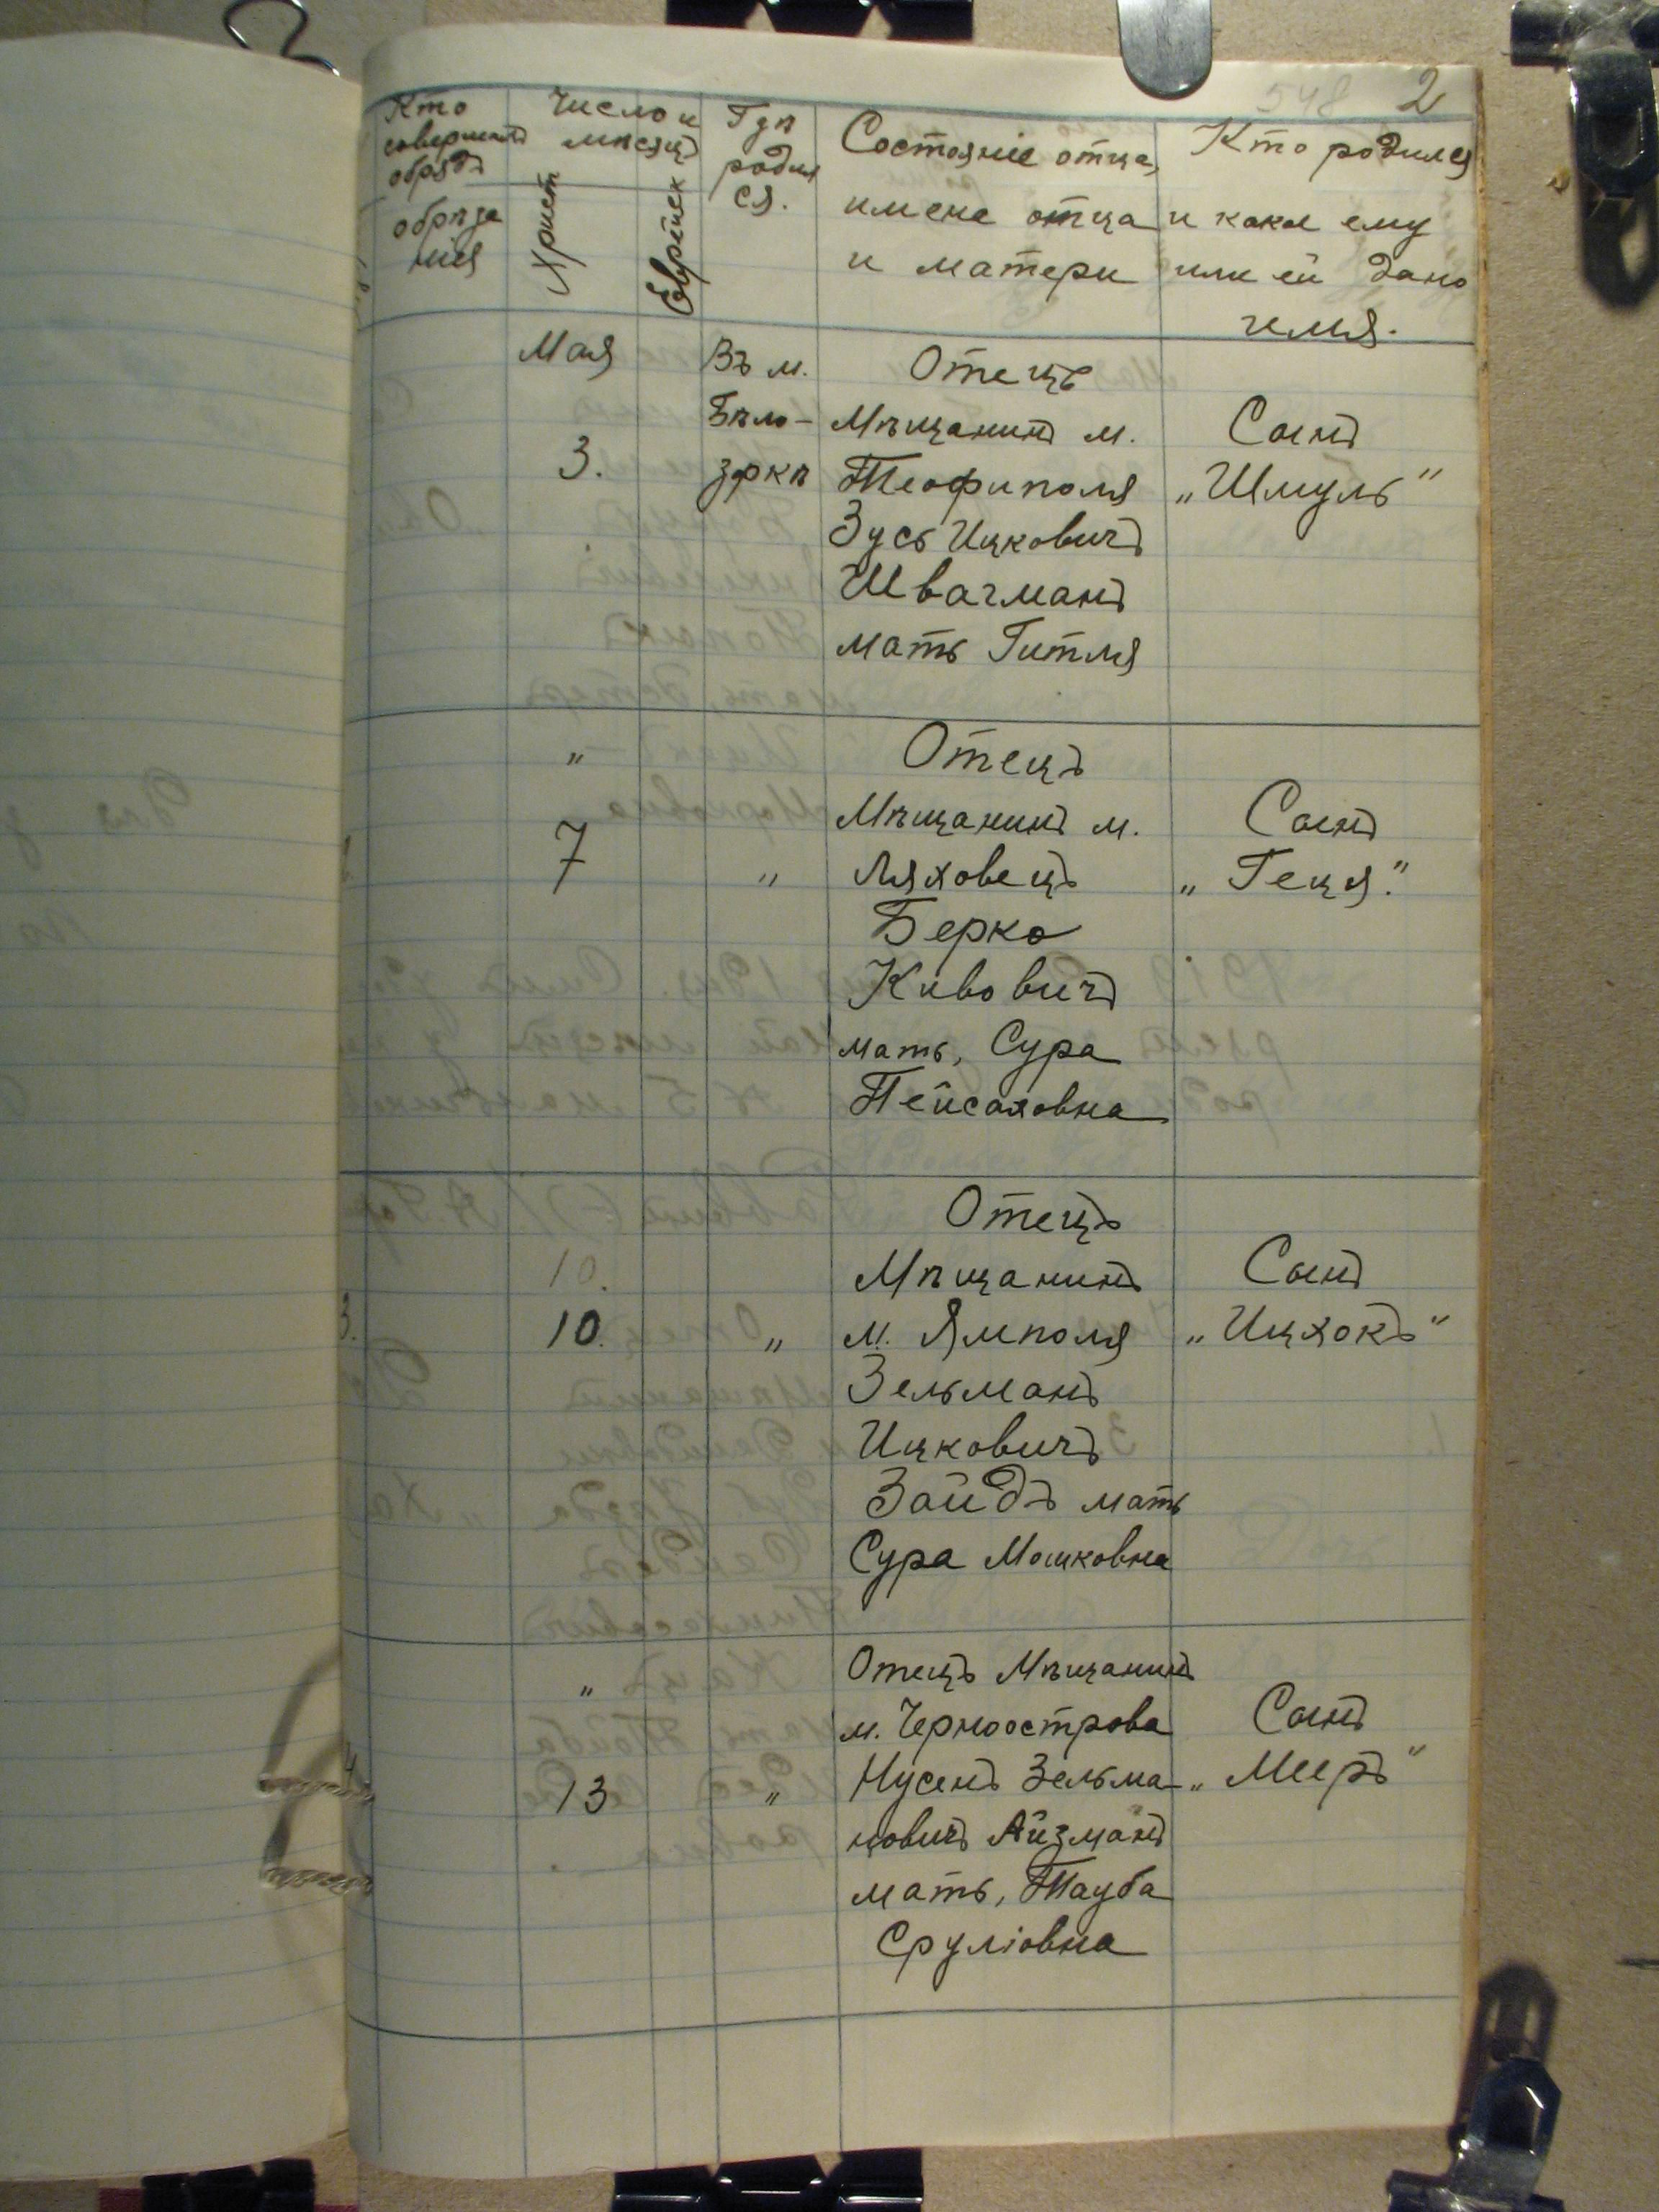 548 2
Кто совершилъ обрядъ обрѣзанія
Число и мѣсяцъ
Христ
Еврейск
Гдѣ родился.
Состояніе отца,
имена отца
и матери
Кто родился
и какое ему
или ей дано
имя.
Мая
3.
Въ м.
Бѣло-
зркѣ
Отецъ
Мѣщанинъ м.
Теофиполя
Зусь Ицковичъ
Швагманъ
мать Гитля
Сынъ
„Шмуль“
„
7
„
Отецъ
Мѣщанинъ м.
Ляховецъ
Берко
Кивовичъ
мать, Сура
Пейсаховна
Сынъ
„Геця.“
3.
10.
10.
„
Отецъ
Мѣщанинъ
м. Ямполя
Зельманъ
Ицковичъ
Зайдъ мать
Сура Мошковна
Сынъ
„Ицхокъ“
4
„
13
„
Отецъ Мѣщанинъ
м. Черноострова
Нусенъ Зельма-
новичъ Айзманъ
мать, Тауба
Cруліовна
Сынъ
„Мееръ“